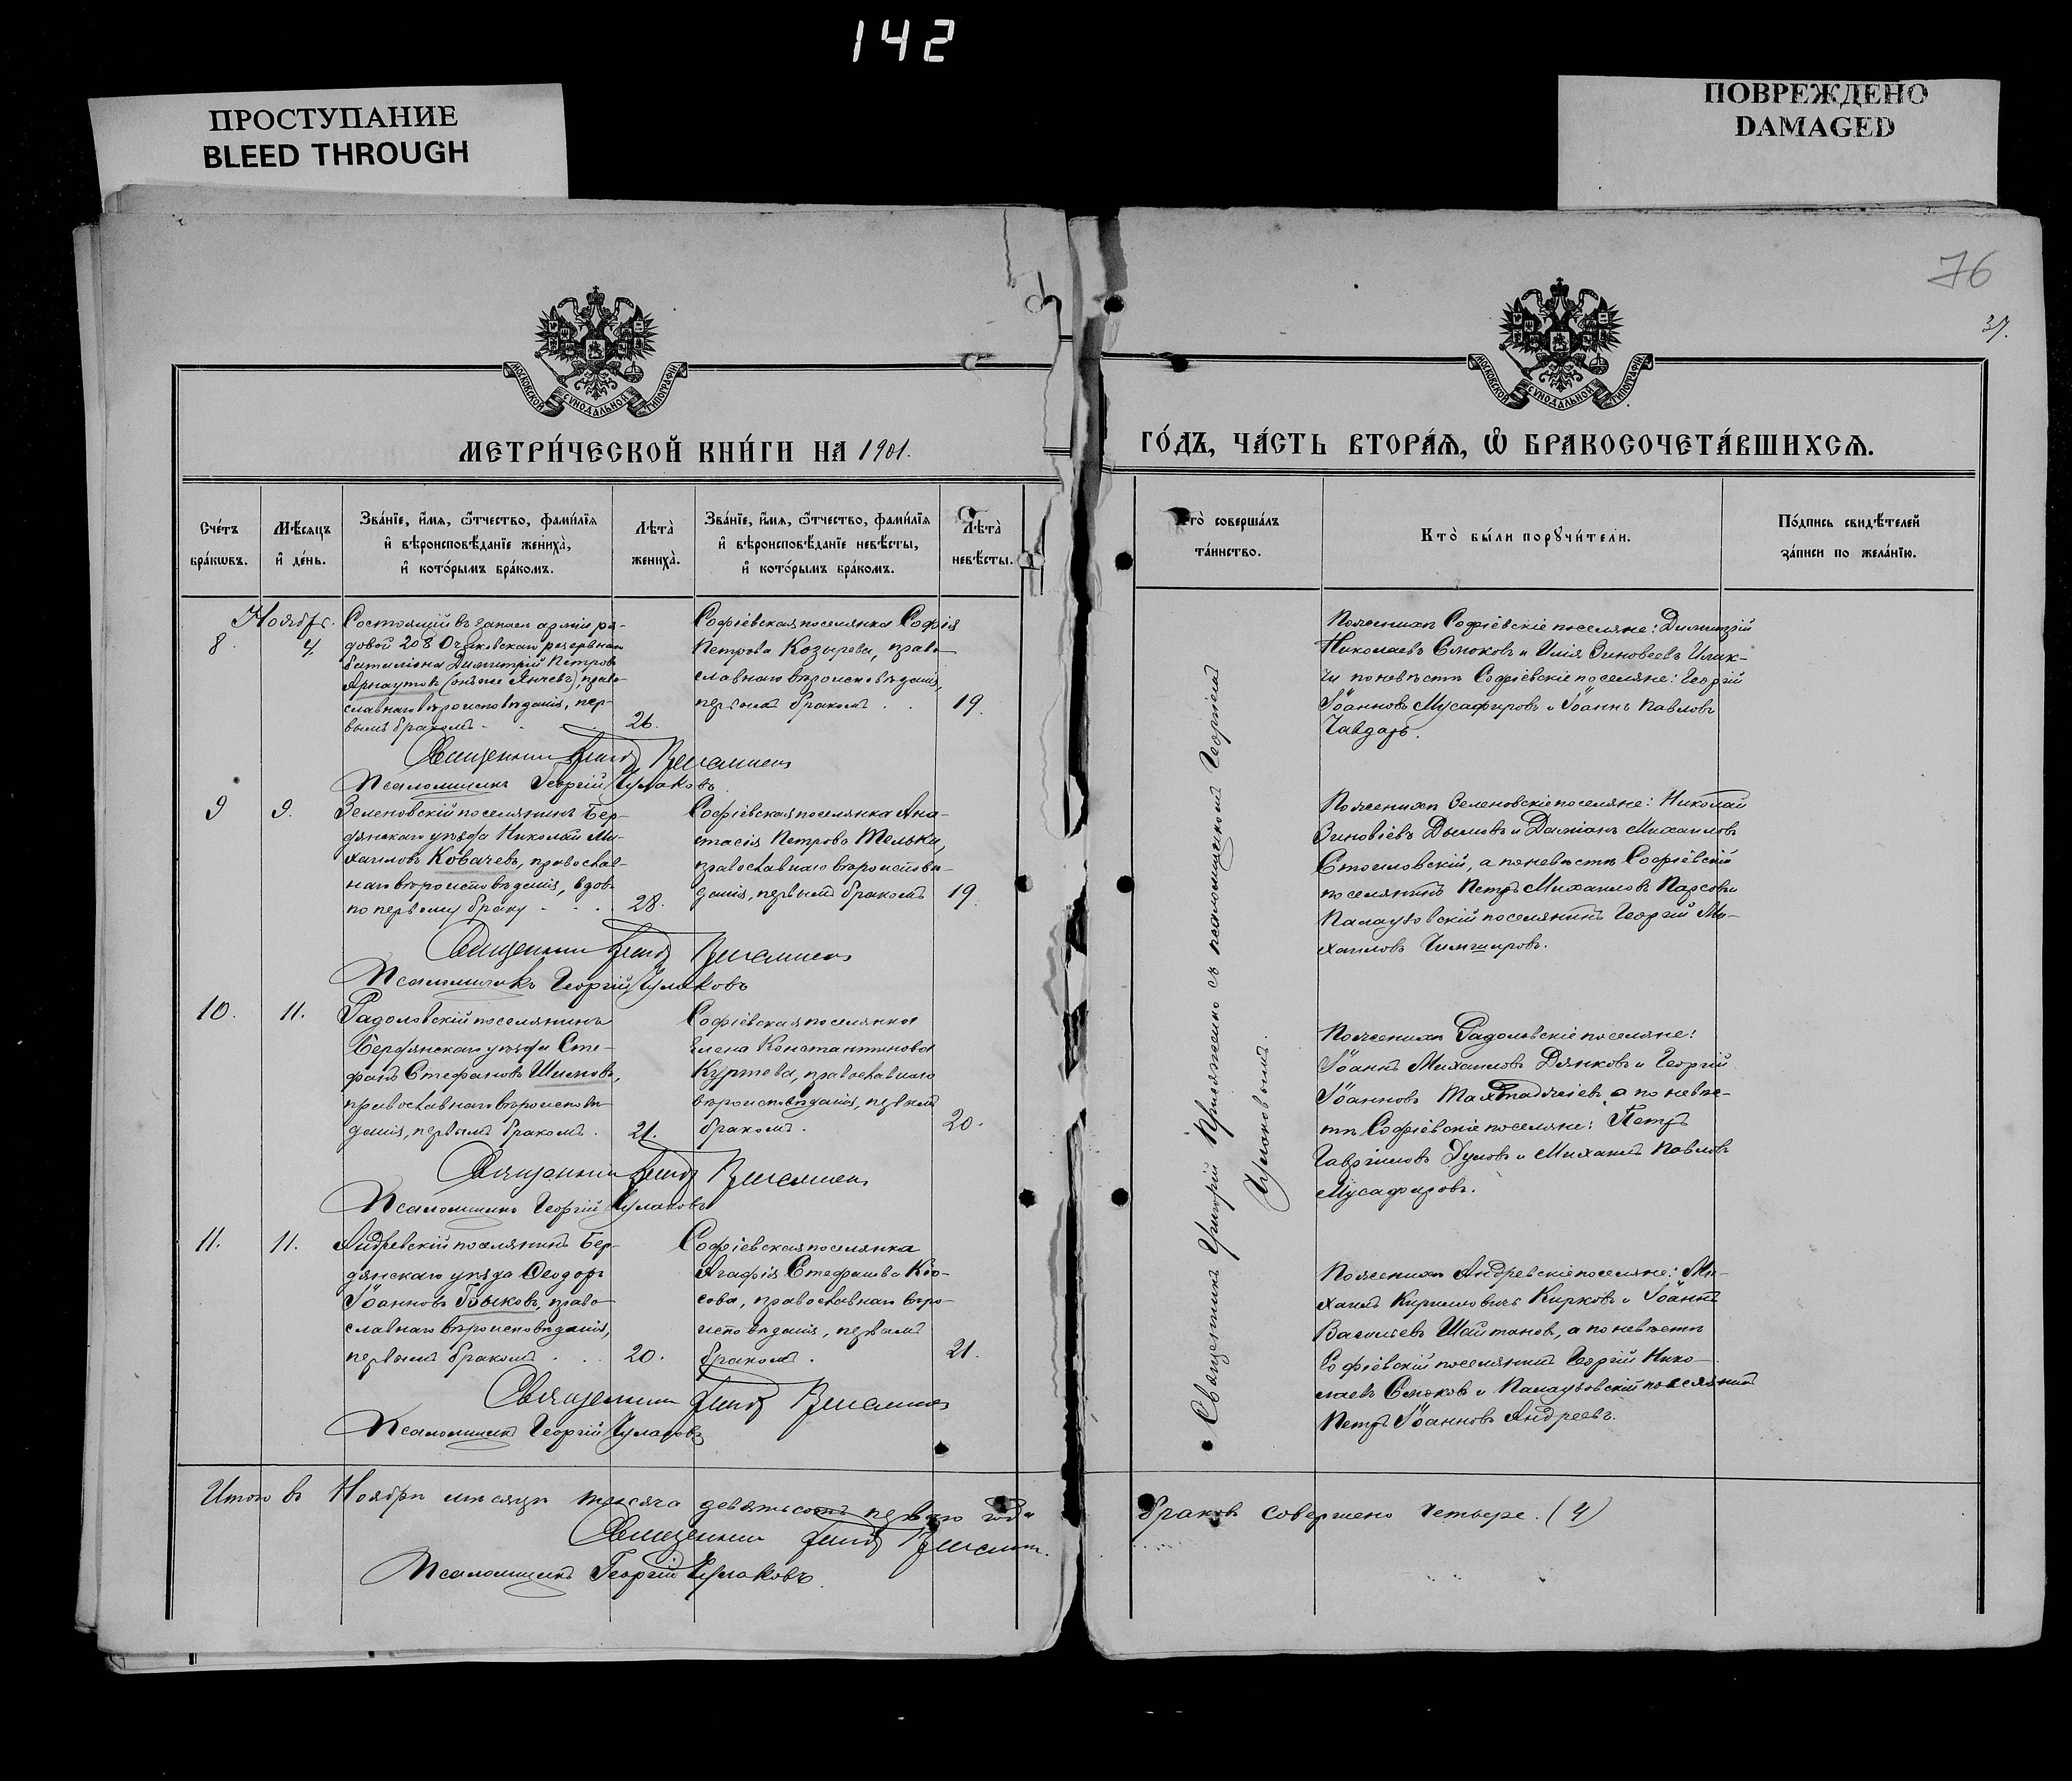 142
ПРОСТУПАНИЕ
BLEED THROUGH
ПОВРЕЖДЕНО
DAMAGED
76
37.
МОСКОВСКОЙ СѴНОДАЛЬНОЙ ТИПОГРАФІИ
МОСКОВСКОЙ СѴНОДАЛЬНОЙ ТИПОГРАФІИ
МЕТРИ́ЧЕСКОЙ КНИ́ГИ НА 1901.
ГО́ДЪ, ЧА́СТЬ ВТОРА́Ѧ, Ѽ БРАКОСОЧЕТА́ВШИХСѦ.
Сче́тъ
бра́кѡвъ.
Мѣ́сяцъ
и҆ де́нь.
Зва́нїе, и҆́мя, ѻ҆́тчество, фами́лїя
и҆ вѣроисповѣ́данїе жениха̀,
и҆ кото́рымъ бра́комъ.
Лѣта̀
жениха̀.
Зва́нїе, и҆́мя, ѻ҆́тчество, фами́лїя
и҆ вѣроисповѣ́данїе невѣ́сты,
и҆ кото́рымъ бра́комъ.
Лѣта̀
невѣ́сты.
Кто̀ соверша́лъ
та́инство.
Кто̀ бы́ли порꙋчи́тели.
По́дпись свидѣ́телей
за́писи по жела́нїю.
Ноябрь.
8. 4.
Состоящій въ запасѣ арміи ря-
довой 208 Очаковскаго резервнаго
баталіона Димитрій Петровъ
Арнаутовъ (онъ же Янчевъ), право-
славнаго вѣроисповѣданія, пер-
вымъ бракомъ 26.
Софіевская поселянка Софія
Петрова Козырева, право-
славнаго вѣроисповѣданія,
первымъ бракомъ . . 19.
По женихѣ Софіевскіе поселяне: Димитрій
Николаевъ Стоковъ и Илія Зиновьевъ
по невѣстѣ Софіевскіе поселяне: Георгій
Іоанновъ Мусафировъ и Іоаннъ Павловъ
Чавдарь.
Священникъ
Псаломщикъ Георгій Чумаковъ
9 9.
Зеленовскій поселянинъ Бер-
дянскаго уѣзда Николай Ми-
хаиловъ Ковачевъ, православ-
наго вѣроисповѣданія, вдовъ
по первому браку . . . 28.
Софіевская поселянка Ана-
стасія Петрова Тельки,
православнаго вѣроисповѣ-
данія, первымъ бракомъ 19.
По женихѣ Зеленовскіе поселяне: Николай
Зиновіевъ Дымовъ и Даміанъ Михаиловъ
Стоиловскій, а по невѣстѣ Софіевскій
поселянинъ Петръ Михаиловъ
Палаузовскій поселянинъ Георгій Ми-
хаиловъ Чимшировъ.
Священникъ
Псаломщикъ Георгій Чумаковъ
10. 11.
Радоловскій поселянинъ
Бердянскаго уѣзда Сте-
фанъ Стефановъ Шишковъ,
православнаго вѣроисповѣ-
данія, первымъ бракомъ. 21.
Софіевская поселянка
Елена Константинова
Куртева, православнаго
вѣроисповѣданія, первымъ
бракомъ. 20.
По женихѣ Радоловскіе поселяне:
Іоаннъ Михаиловъ Дянковъ и Георгій
Іоанновъ а по невѣ-
стѣ Софіевскіе поселяне: Петръ
Гавріиловъ Дуловъ и Михаилъ Павловъ
Мусафировъ.
Священникъ
Псаломщикъ Георгій Чумаковъ
11. 11.
Андревскій поселянинъ Бер-
дянскаго уѣзда Ѳеодоръ
Іоанновъ Быковъ, право-
славнаго вѣроисповѣданія,
первымъ бракомъ . . . 20.
Софіевская поселянка
Агафія Стефанова Кіо-
сова, православнаго вѣро-
исповѣданія, первымъ
бракомъ. 21.
По женихѣ Андревскіе поселяне: Ми-
хаилъ Кирилловичъ Кирковъ и Іоаннъ
Василіевъ Шайтановъ, а по невѣстѣ
Софіевскій поселянинъ Георгій Нико-
лаевъ Стоковъ и Палаузовскій поселянинъ
Петръ Іоанновъ Андреевъ.
Священникъ
Псаломщикъ Георгій Чумаковъ
Священникъ Григорій съ псаломщикомъ Георгіемъ
Чумаковымъ.
Итого въ Ноябрѣ мѣсяцѣ тысяча девятьсотъ перваго года
браковъ совершено четыре. (4)
Священникъ
Псаломщикъ Георгій Чумаковъ.